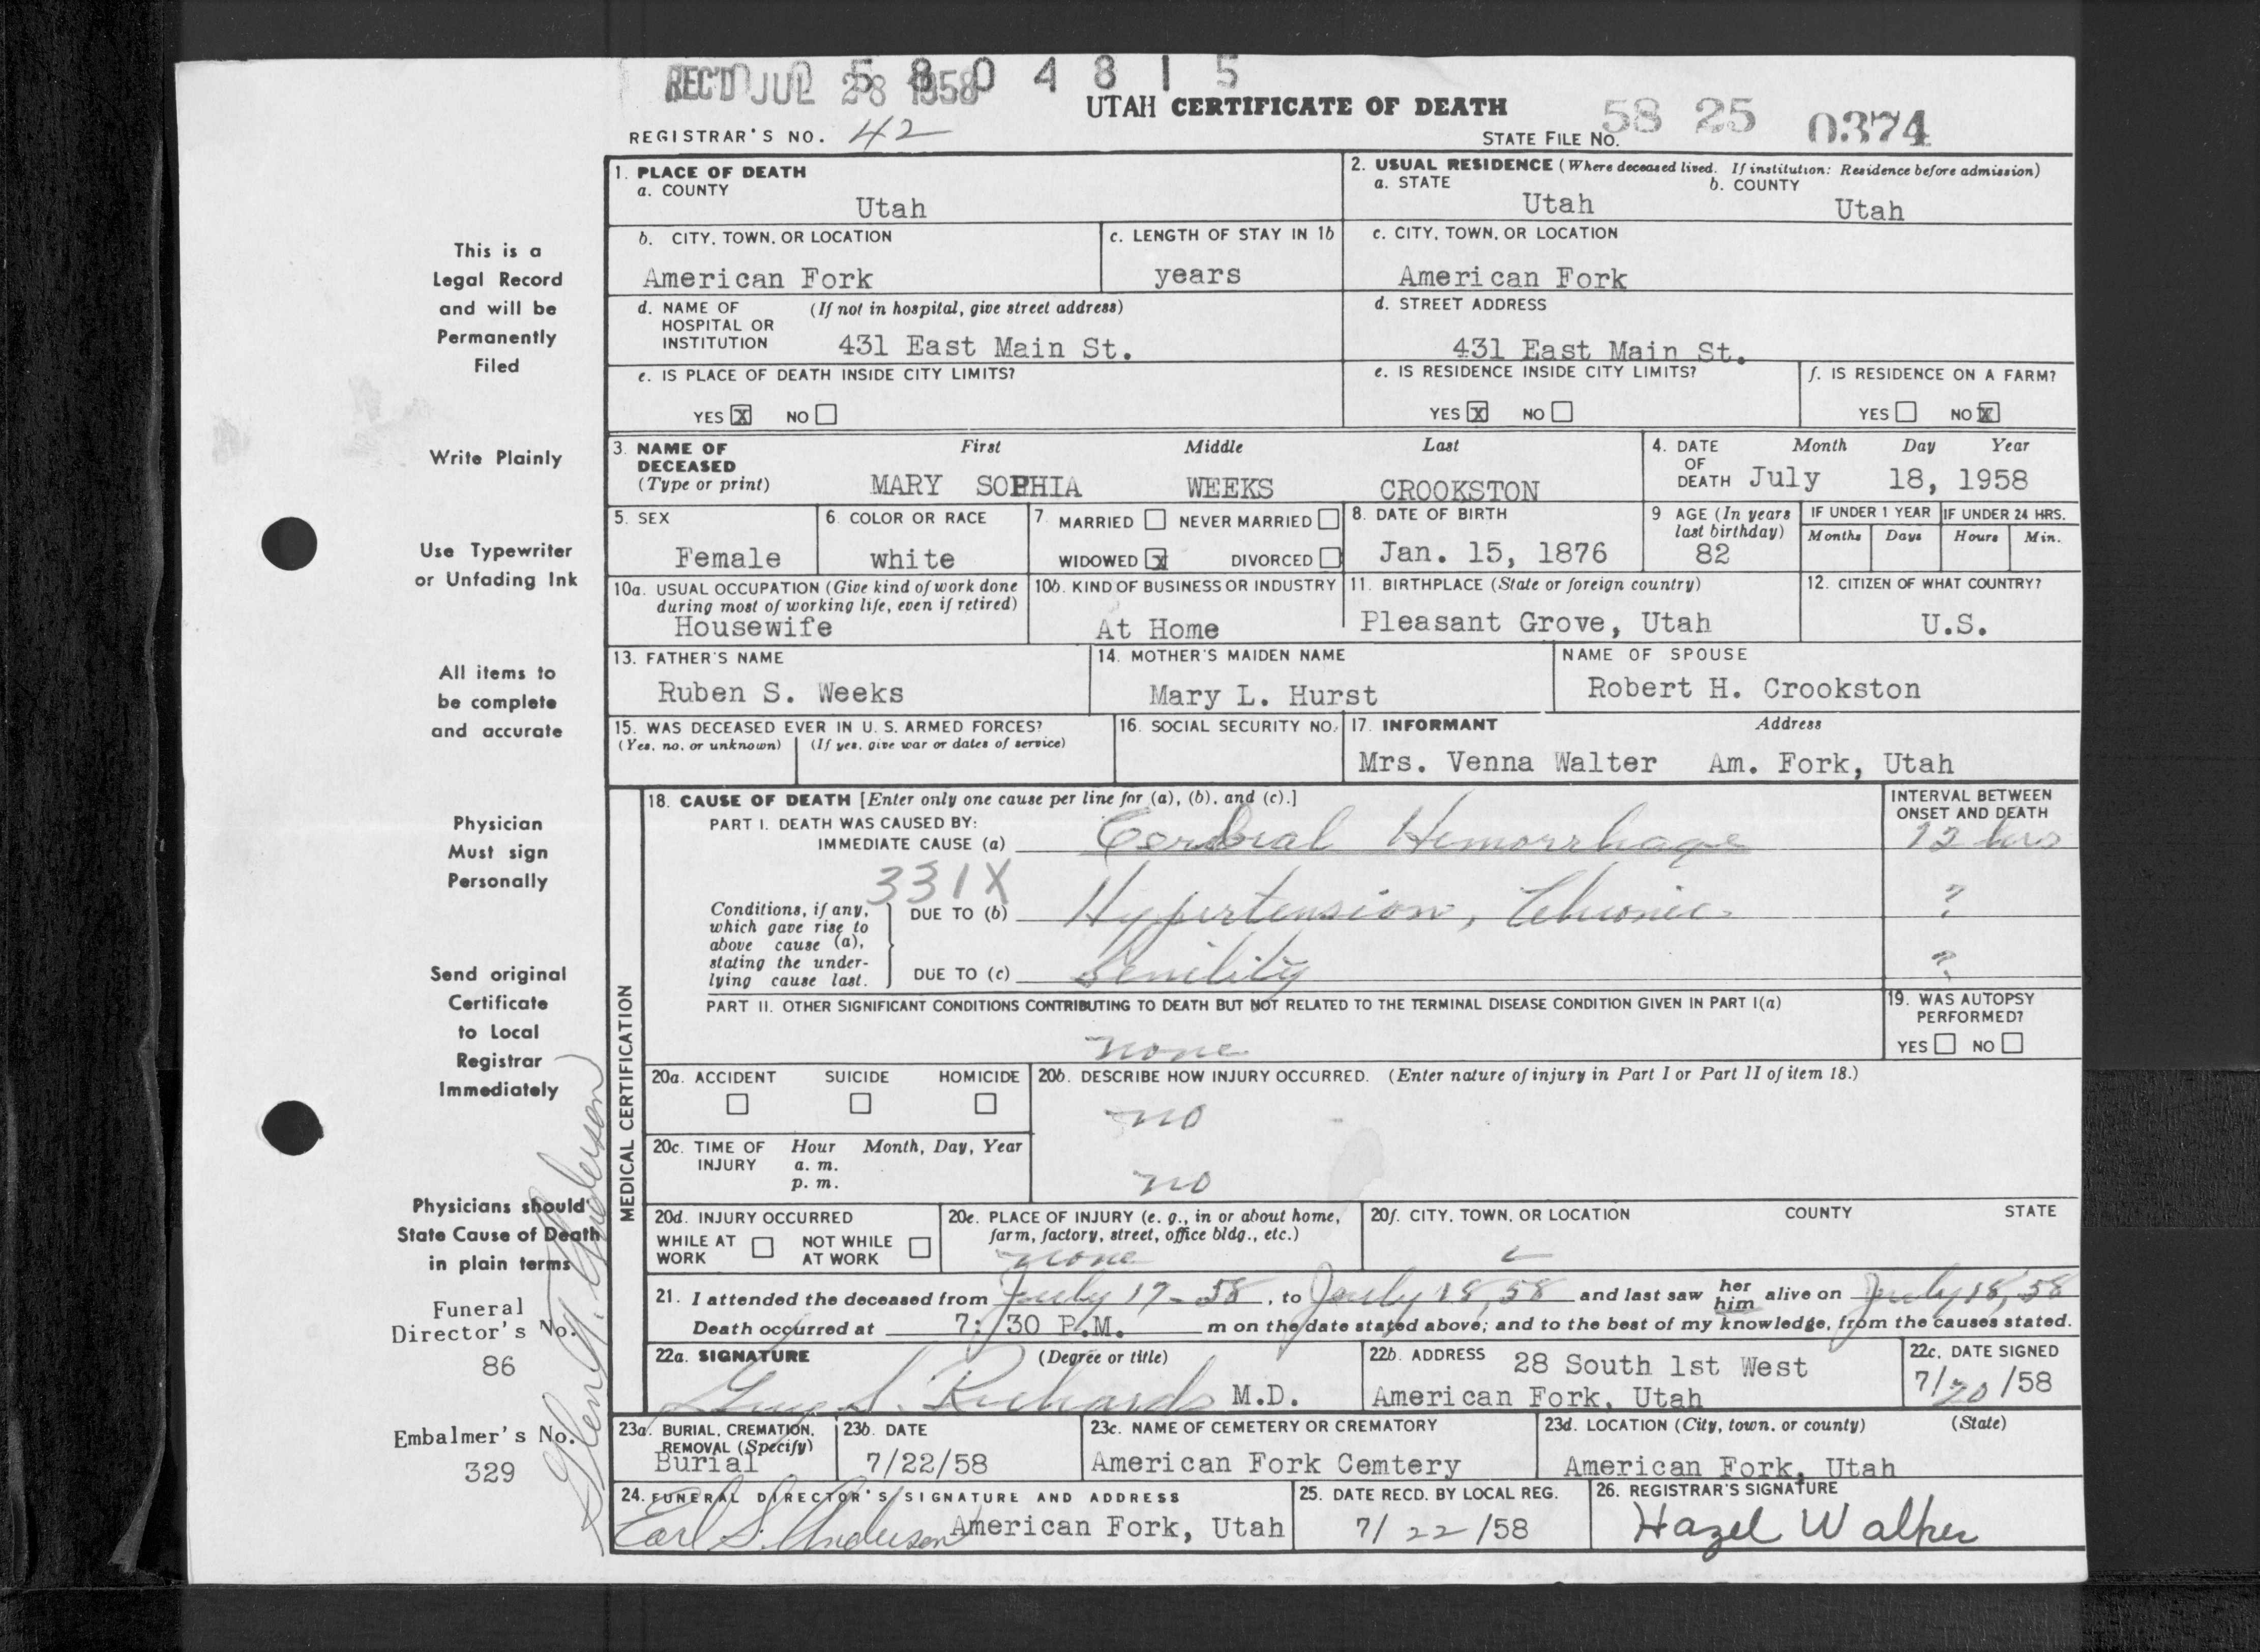 REC'D JUL 28 1958
58 0 4 8 1 5
UTAH CERTIFICATE OF DEATH
REGISTRAR'S NO. 42
STATE FILE NO. 58 25 0374
This is a
Legal Record
and will be
Permanently
Filed
Write Plainly
Use Typewriter
or Unfading Ink
All items to
be complete
and accurate
Physician
Must sign
Personally
Send original
Certificate
to Local
Registrar
Immediately
Physicians should
State Cause of Death
in plain terms
Funeral
Director's No.
86
Embalmer's No.
329
Glen H. Anderson
1. PLACE OF DEATH
a. COUNTY
Utah
2. USUAL RESIDENCE (Where deceased lived. If institution: Residence before admission)
a. STATE b. COUNTY
Utah Utah
b. CITY, TOWN, OR LOCATION
American Fork
c. LENGTH OF STAY IN 1b
years
c. CITY, TOWN, OR LOCATION
American Fork
d. NAME OF (If not in hospital, give street address)
HOSPITAL OR
INSTITUTION 431 East Main St.
d. STREET ADDRESS
431 East Main St.
e. IS PLACE OF DEATH INSIDE CITY LIMITS?
YES X NO
e. IS RESIDENCE INSIDE CITY LIMITS?
YES X NO
f. IS RESIDENCE ON A FARM?
YES NO X
3. NAME OF First Middle Last
DECEASED
(Type or print) MARY SOPHIA WEEKS CROOKSTON
4. DATE Month Day Year
OF
DEATH July 18, 1958
5. SEX
Female
6. COLOR OR RACE
white
7. MARRIED NEVER MARRIED
WIDOWED X DIVORCED
8. DATE OF BIRTH
Jan. 15, 1876
9 AGE (In years
last birthday)
82
IF UNDER 1 YEAR IF UNDER 24 HRS.
Months Days Hours Min.
10a. USUAL OCCUPATION (Give kind of work done
during most of working life, even if retired)
Housewife
10b. KIND OF BUSINESS OR INDUSTRY
At Home
11. BIRTHPLACE (State or foreign country)
Pleasant Grove, Utah
12. CITIZEN OF WHAT COUNTRY?
U.S.
13. FATHER'S NAME
Ruben S. Weeks
14. MOTHER'S MAIDEN NAME
Mary L. Hurst
NAME OF SPOUSE
Robert H. Crookston
15. WAS DECEASED EVER IN U. S. ARMED FORCES?
(Yes, no, or unknown) (If yes, give war or dates of service)
16. SOCIAL SECURITY NO.
17. INFORMANT Address
Mrs. Venna Walter Am. Fork, Utah
MEDICAL CERTIFICATION
18. CAUSE OF DEATH [Enter only one cause per line for (a), (b), and (c).]
INTERVAL BETWEEN
ONSET AND DEATH
PART I. DEATH WAS CAUSED BY:
IMMEDIATE CAUSE (a) Cerebral Hemorrhage 12 hrs
331X
Conditions, if any,
which gave rise to
above cause (a),
stating the under-
lying cause last.
DUE TO (b) Hypertension, Chronic ?
DUE TO (c) Senility ?
PART II. OTHER SIGNIFICANT CONDITIONS CONTRIBUTING TO DEATH BUT NOT RELATED TO THE TERMINAL DISEASE CONDITION GIVEN IN PART I(a)
none
19. WAS AUTOPSY
PERFORMED?
YES NO
20a. ACCIDENT SUICIDE HOMICIDE
20b. DESCRIBE HOW INJURY OCCURRED. (Enter nature of injury in Part I or Part II of item 18.)
no
20c. TIME OF Hour Month, Day, Year
INJURY a. m.
p. m.
no
20d. INJURY OCCURRED
WHILE AT NOT WHILE
WORK AT WORK
20e. PLACE OF INJURY (e. g., in or about home,
farm, factory, street, office bldg., etc.)
none
20f. CITY, TOWN, OR LOCATION COUNTY STATE
21. I attended the deceased from July 17-58, to July 18, 58 and last saw her him alive on July 18, 58
Death occurred at 7:30 P.M. m on the date stated above; and to the best of my knowledge, from the causes stated.
22a. SIGNATURE (Degree or title)
Guy S. Richards M.D.
22b. ADDRESS 28 South 1st West
American Fork, Utah
22c. DATE SIGNED
7/20/58
23a. BURIAL, CREMATION,
REMOVAL (Specify)
Burial
23b. DATE
7/22/58
23c. NAME OF CEMETERY OR CREMATORY
American Fork Cemtery
23d. LOCATION (City, town, or county) (State)
American Fork, Utah
24. FUNERAL DIRECTOR'S SIGNATURE AND ADDRESS
Earl S. Anderson American Fork, Utah
25. DATE RECD. BY LOCAL REG.
7/22/58
26. REGISTRAR'S SIGNATURE
Hazel Walker